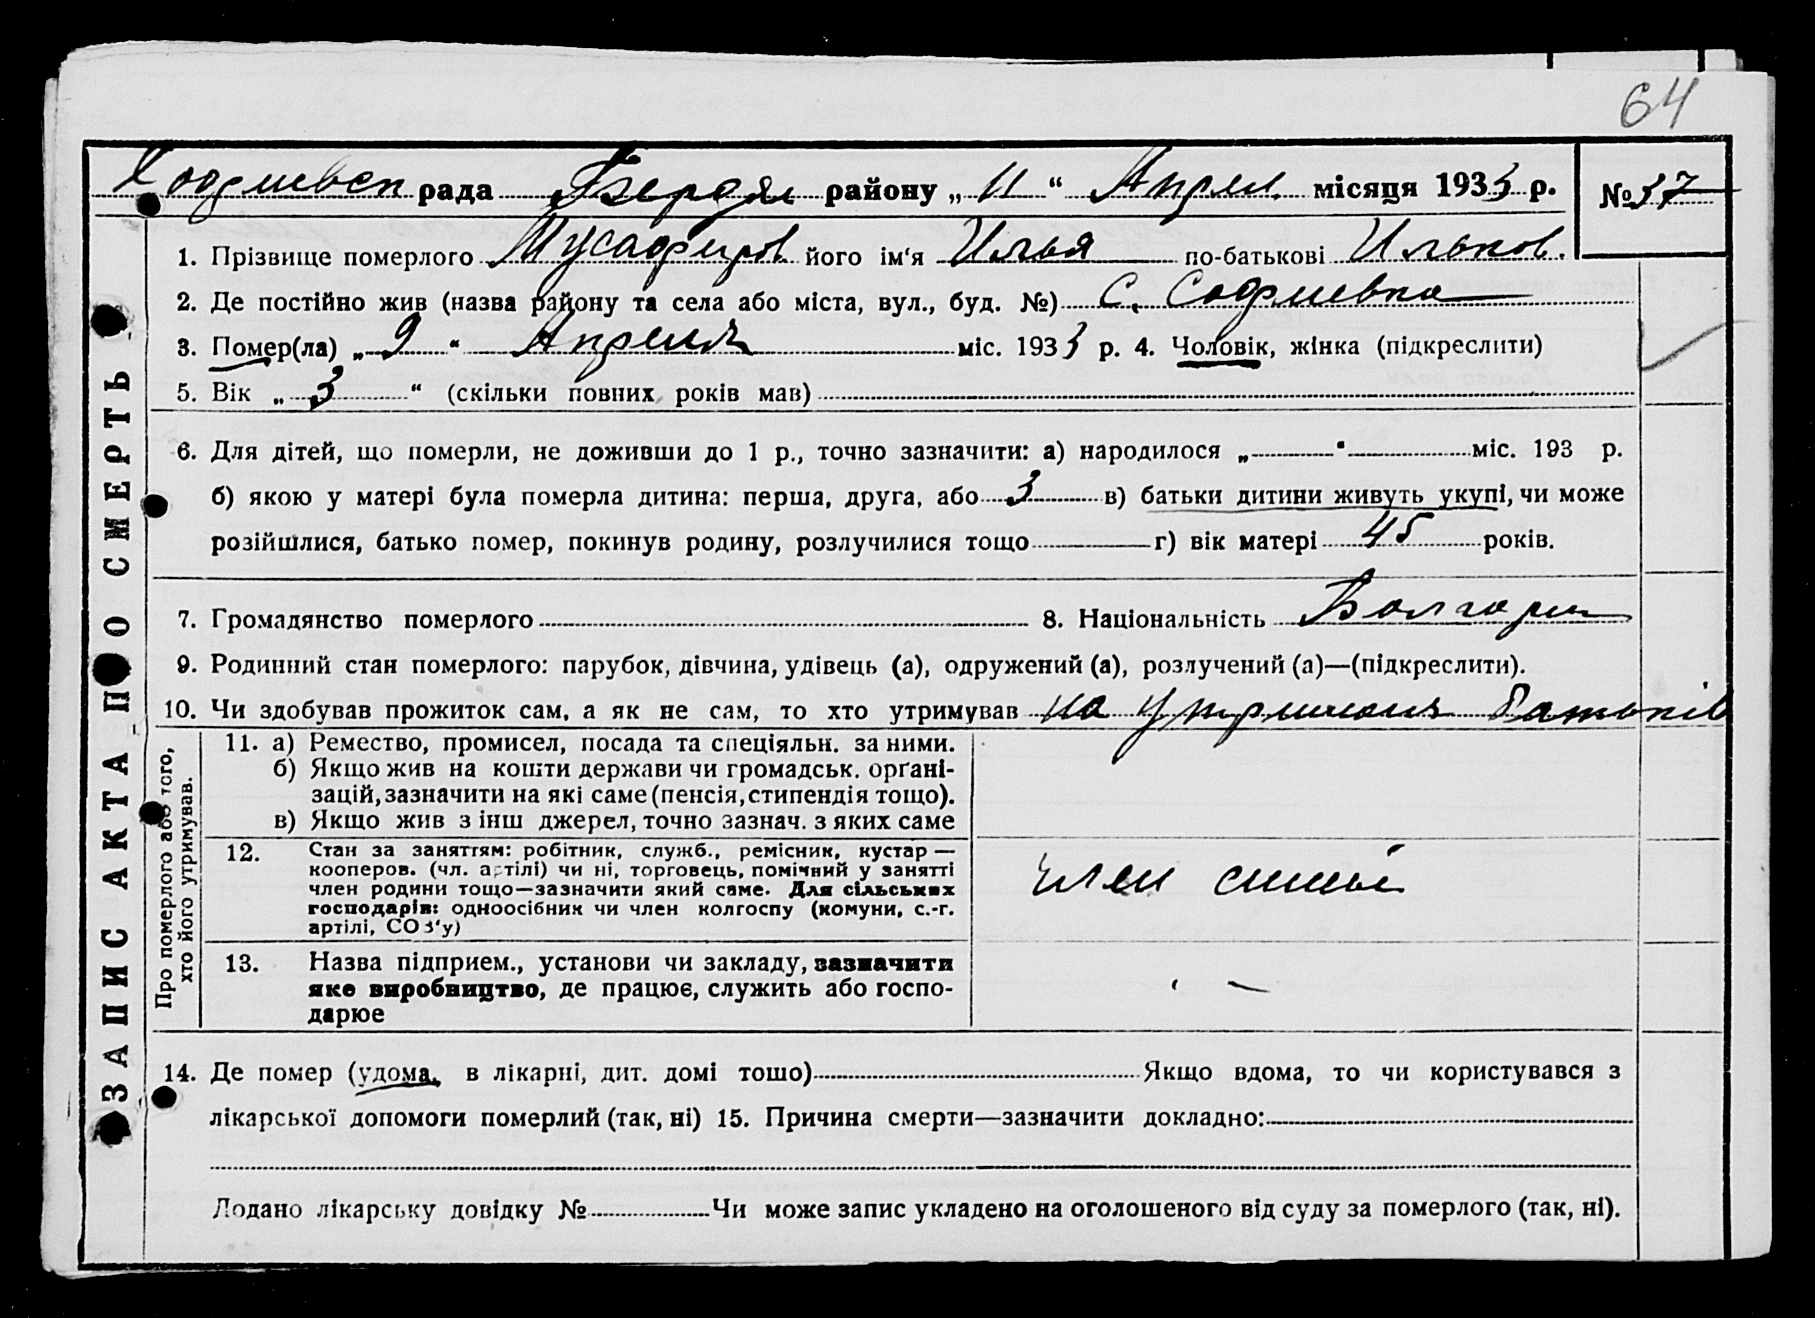 64
Софиевск рада Бердян району „11“ Апрел. місяця 1933 р. №37
1. Прізвище померлого Мусафиров його ім'я Илья по-батькові Ильков.
2. Де постійно жив (назва району та села або міста, вул., буд. №) С. Софиевка
3. Помер(ла) „9“ Апреля міс. 1933 р. 4. Чоловік, жінка (підкреслити)
5. Вік „3“ (скільки повних років мав)
6. Для дітей, що померли, не доживши до 1 р., точно зазначити: а) народилося „ “ міс. 193 р.
б) якою у матері була померла дитина: перша, друга, або 3 в) батьки дитини живуть укупі, чи може
розійшлися, батько помер, покинув родину, розлучилися тощо г) вік матері 45 років.
7. Громадянство померлого 8. Національність Болгарин
9. Родинний стан померлого: парубок, дівчина, удівець (а), одружений (а), розлучений (а)—(підкреслити).
10. Чи здобував прожиток сам, а як не сам, то хто утримував на утриманя батьків
ЗАПИС АКТА ПРО СМЕРТЬ
Про померлого або того,
хто його утримував.
11. а) Ремество, промисел, посада та спеціяльн. за ними.
б) Якщо жив на кошти держави чи громадськ. орґані-
зацій, зазначити на які саме (пенсія, стипендія тощо).
в) Якщо жив з інш джерел, точно зазнач. з яких саме
12. Стан за заняттям: робітник, служб., ремісник, кустар —
кооперов. (чл. артілі) чи ні, торговець, помічний у занятті
член родини тощо—зазначити який саме. Для сільських
господарів: одноосібник чи член колгоспу (комуни, с.-г.
артілі, СОЗ'у)
член
13. Назва підприєм., установи чи закладу, зазначити
яке виробництво, де працює, служить або госпо-
дарює
—
14. Де помер (удома, в лікарні, дит. домі тошо) Якщо вдома, то чи користувався з
лікарської допомоги померлий (так, ні) 15. Причина смерти—зазначити докладно:
Додано лікарську довідку № Чи може запис укладено на оголошеного від суду за померлого (так, ні).